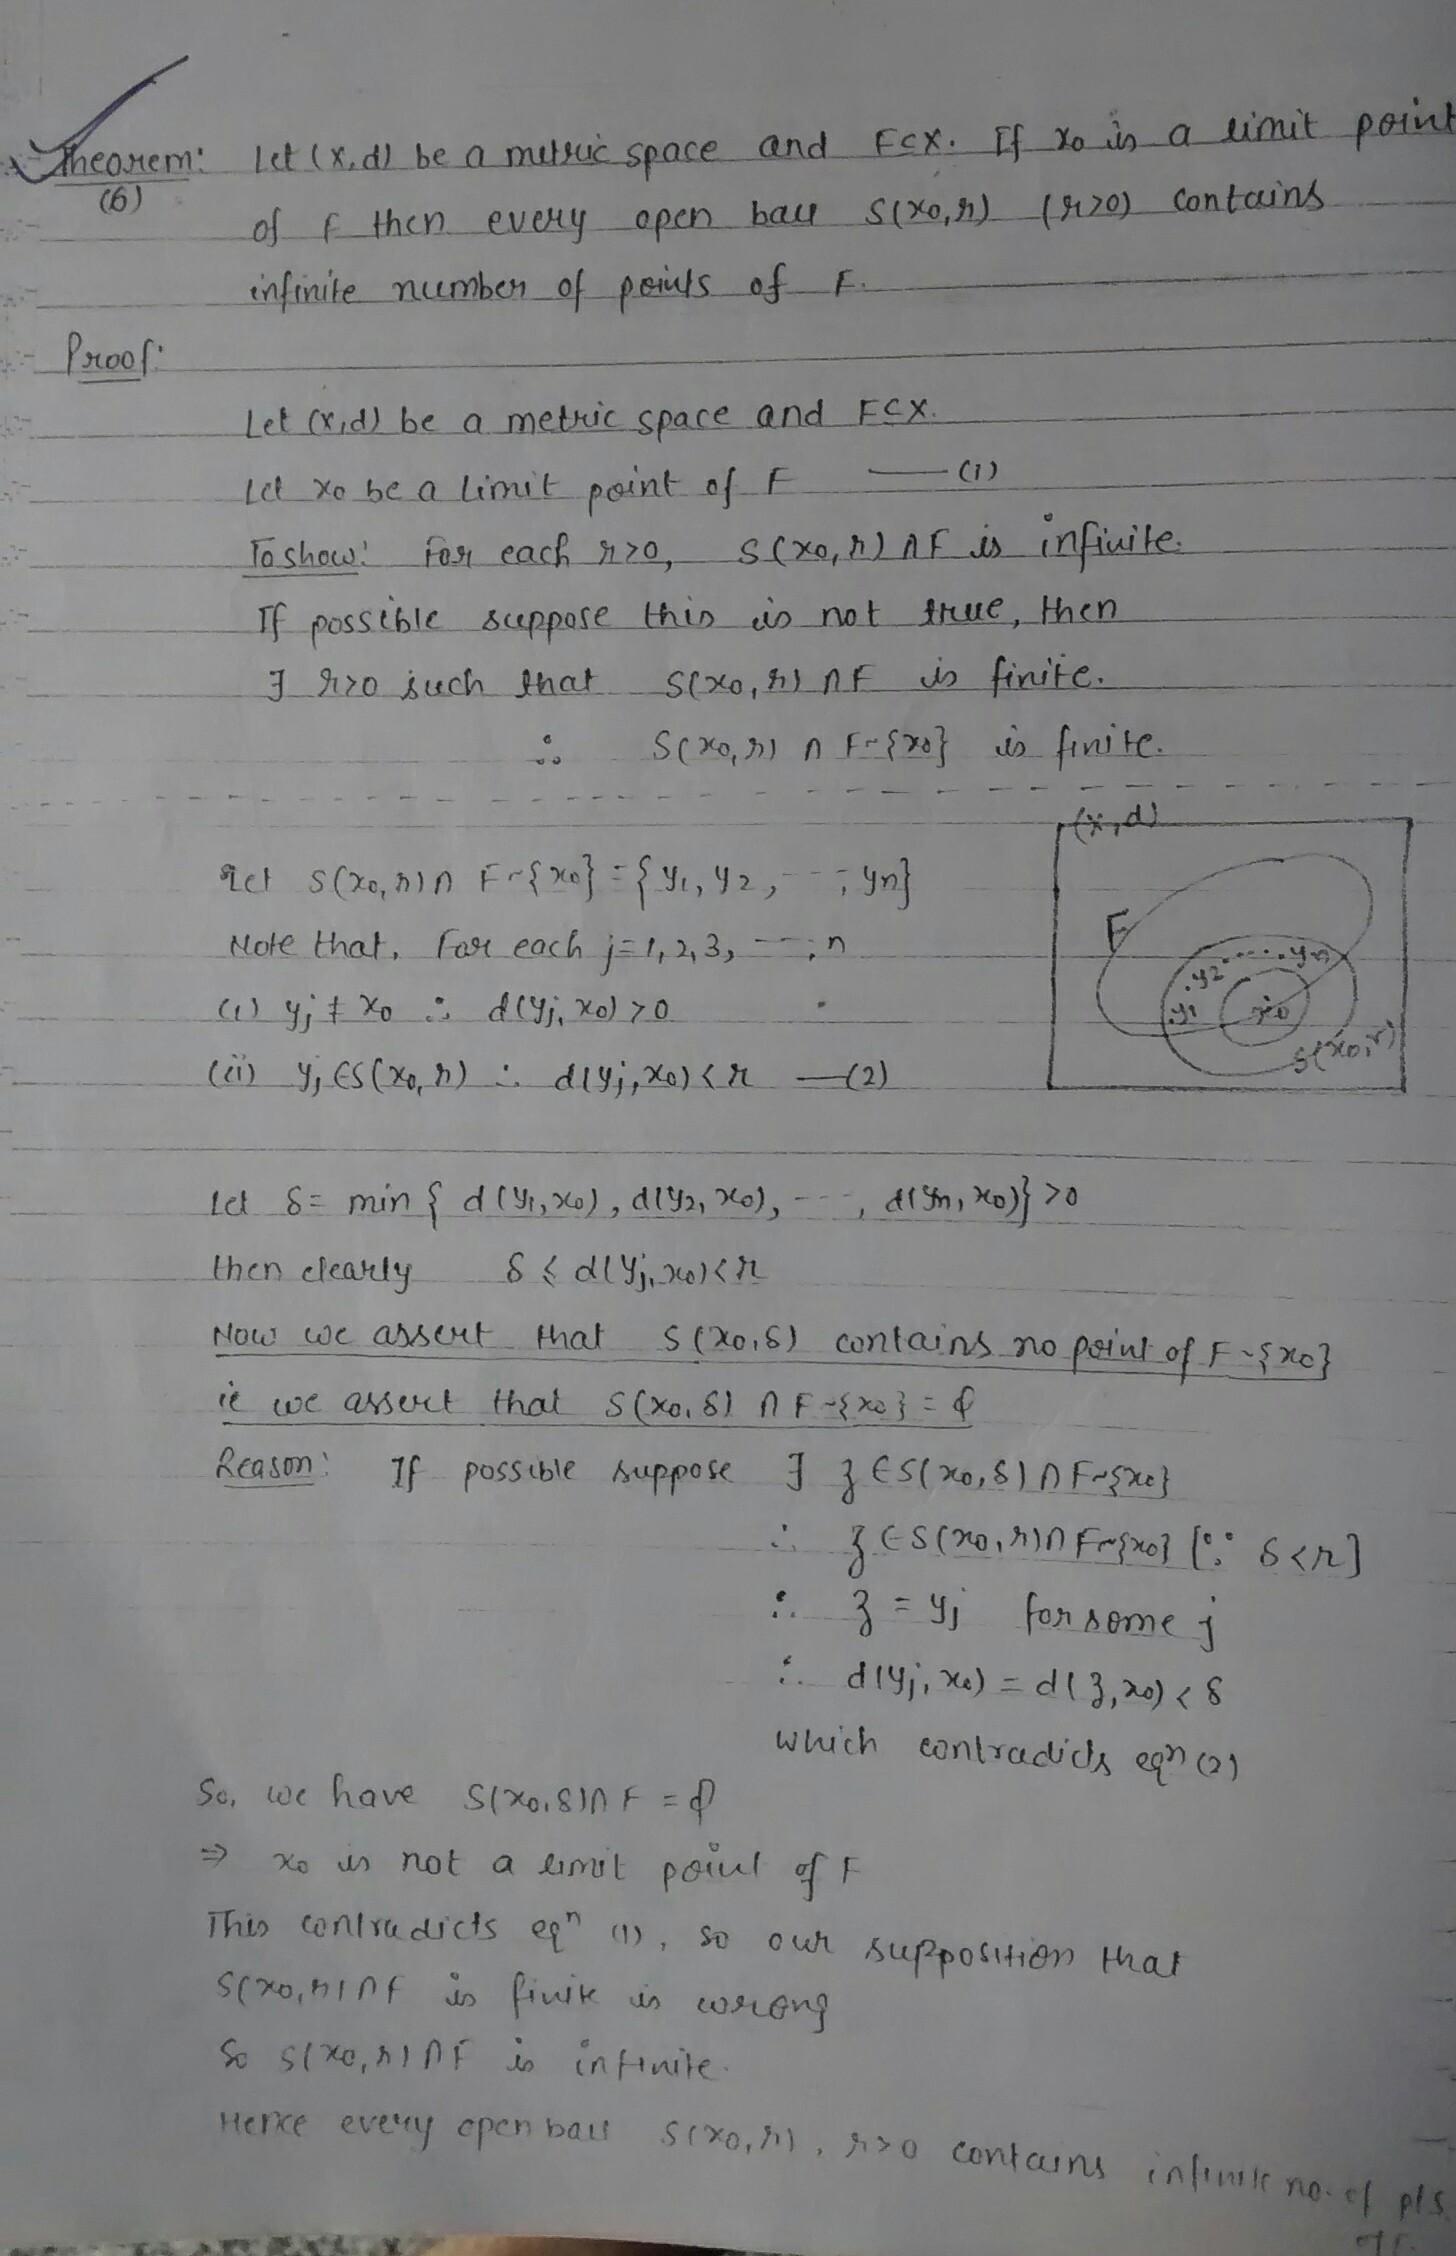 Theorem: Let (X,d) be a metric space and F⊂X. If x0 is a limit point
(6)
of F then every open ball S(x0,r) (r>0) contains
infinite number of points of F.
Proof:
Let (X,d) be a metric space and F⊂X.
Let x0 be a limit point of F —— (1)
To show: For each r>0, S(x0,r) ∩ F is infinite.
If possible suppose this is not true, then
∃ r>0 such that S(x0,r) ∩ F is finite.
∴ S(x0,r) ∩ F~{x0} is finite.
(X,d)
Let S(x0,r) ∩ F~{x0} = {y1, y2, ---, yn}
Note that, For each j=1,2,3, ---, n
(i) yj ≠ x0 ∴ d(yj, x0) >0
(ii) yj ∈ S(x0, r) ∴ d(yj, x0) < r —(2)
F
.y1 .y2 ......yn
.x0
S(x0,r)
Let δ = min { d(y1,x0), d(y2,x0), ---, d(yn,x0)} >0
then clearly δ ≤ d(yj,x0)<r
Now we assert that S(x0,δ) contains no point of F~{x0}
ie we assert that S(x0,δ) ∩ F~{x0} = ϕ
Reason: If possible suppose ∃ z ∈ S(x0,δ) ∩ F~{x0}
∴ z ∈ S(x0,r) ∩ F~{x0} [∵ δ<r]
∴ z = yj for some j
∴ d(yj, x0) = d(z,x0) < δ
which contradicts eqn (2)
So, we have S(x0,δ) ∩ F = ϕ
⇒ x0 is not a limit point of F
This contradicts eqn (1), so our supposition that
S(x0,r) ∩ F is finite is wrong
So S(x0,r) ∩ F is infinite.
Hence every open ball S(x0,r), r>0 contains infinite no. of pts